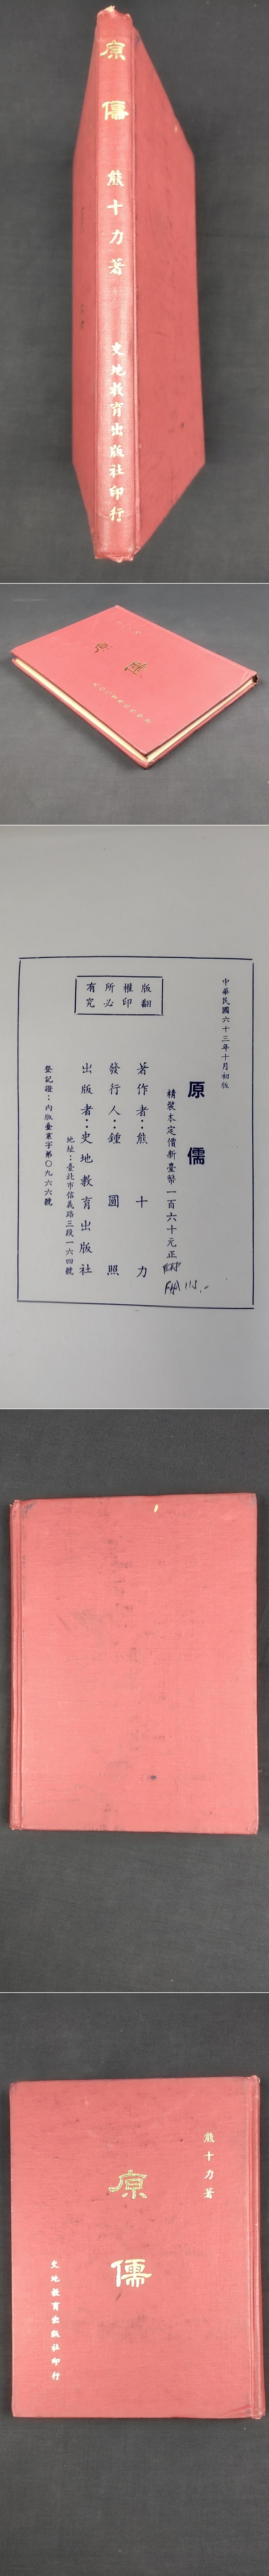 原儒
熊十力著
史地教育出版社印行
原儒
中華民國六十三年十月初版
原儒
精裝本定價新臺幣一百六十元正
著作者：熊十力
發行人：鍾圓照
出版者：史地教育出版社
地址：臺北市信義路三段一六四號
登記證：內版臺業字第〇九六六號
版權所有
翻印必究
熊十力著
原儒
史地教育出版社印行